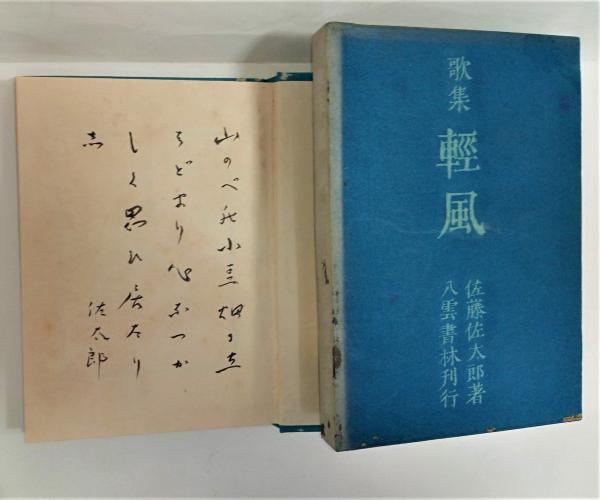 歌集
輕風
佐藤佐太郎著
八雲書林刊行
山のべの小豆畑に立
ちどまり心なつか
しく思ひ居たり
志
佐太郎